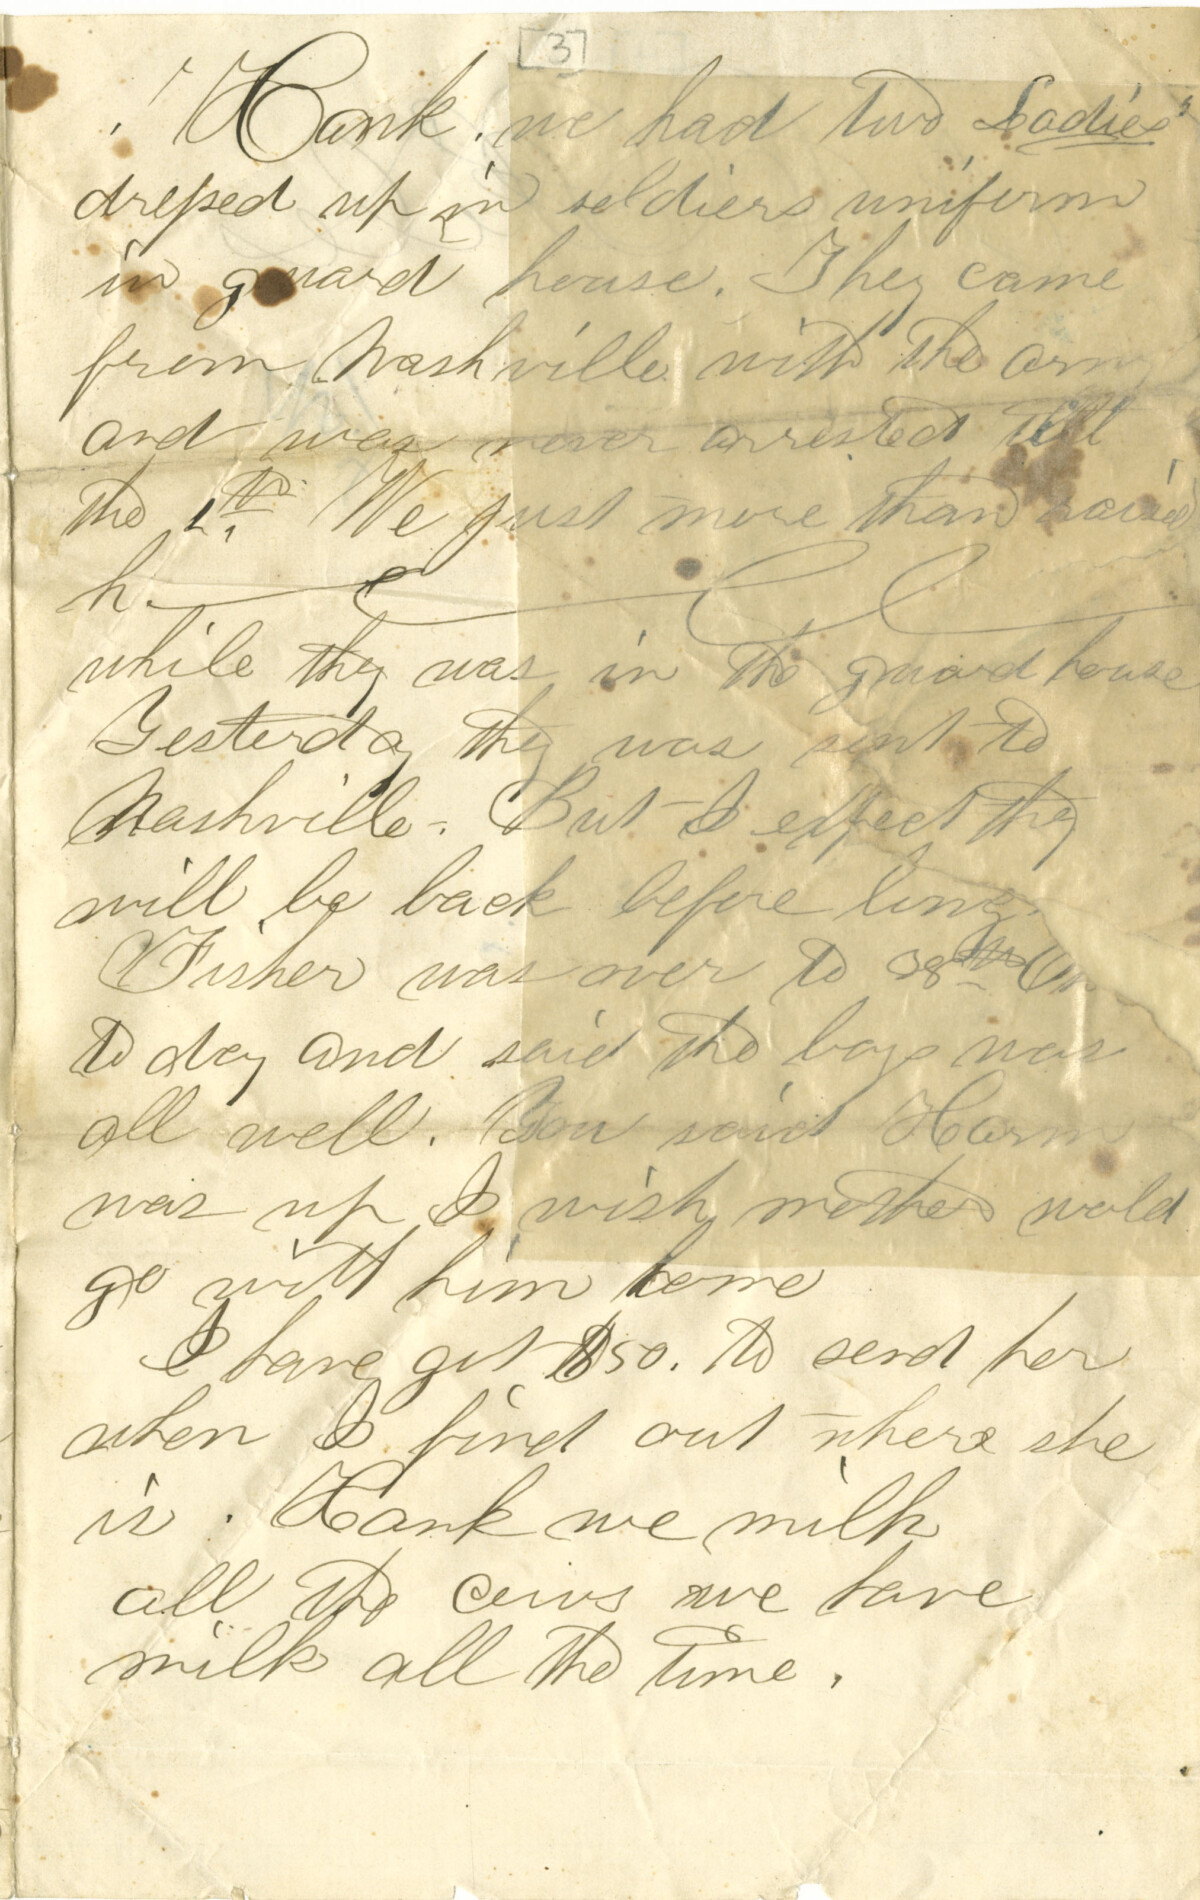 3
Hank. we had two "Ladies"
dressed up in soldiers uniform
in guard house. They came
from Nashville with the army
and was never arrested till
the We just more than raised
h.
while they was in the guard house
Yesterday they was sent to
Nashville. But I expect they
will be back before long.
Fisher was over to 38th
to day and said the boys was
all well. You said Harm
was up I wish mother wold
go with him home
I have got $50. to send her
when I find out where she
is. Hank we milk
all the cows we have
milk all the time.